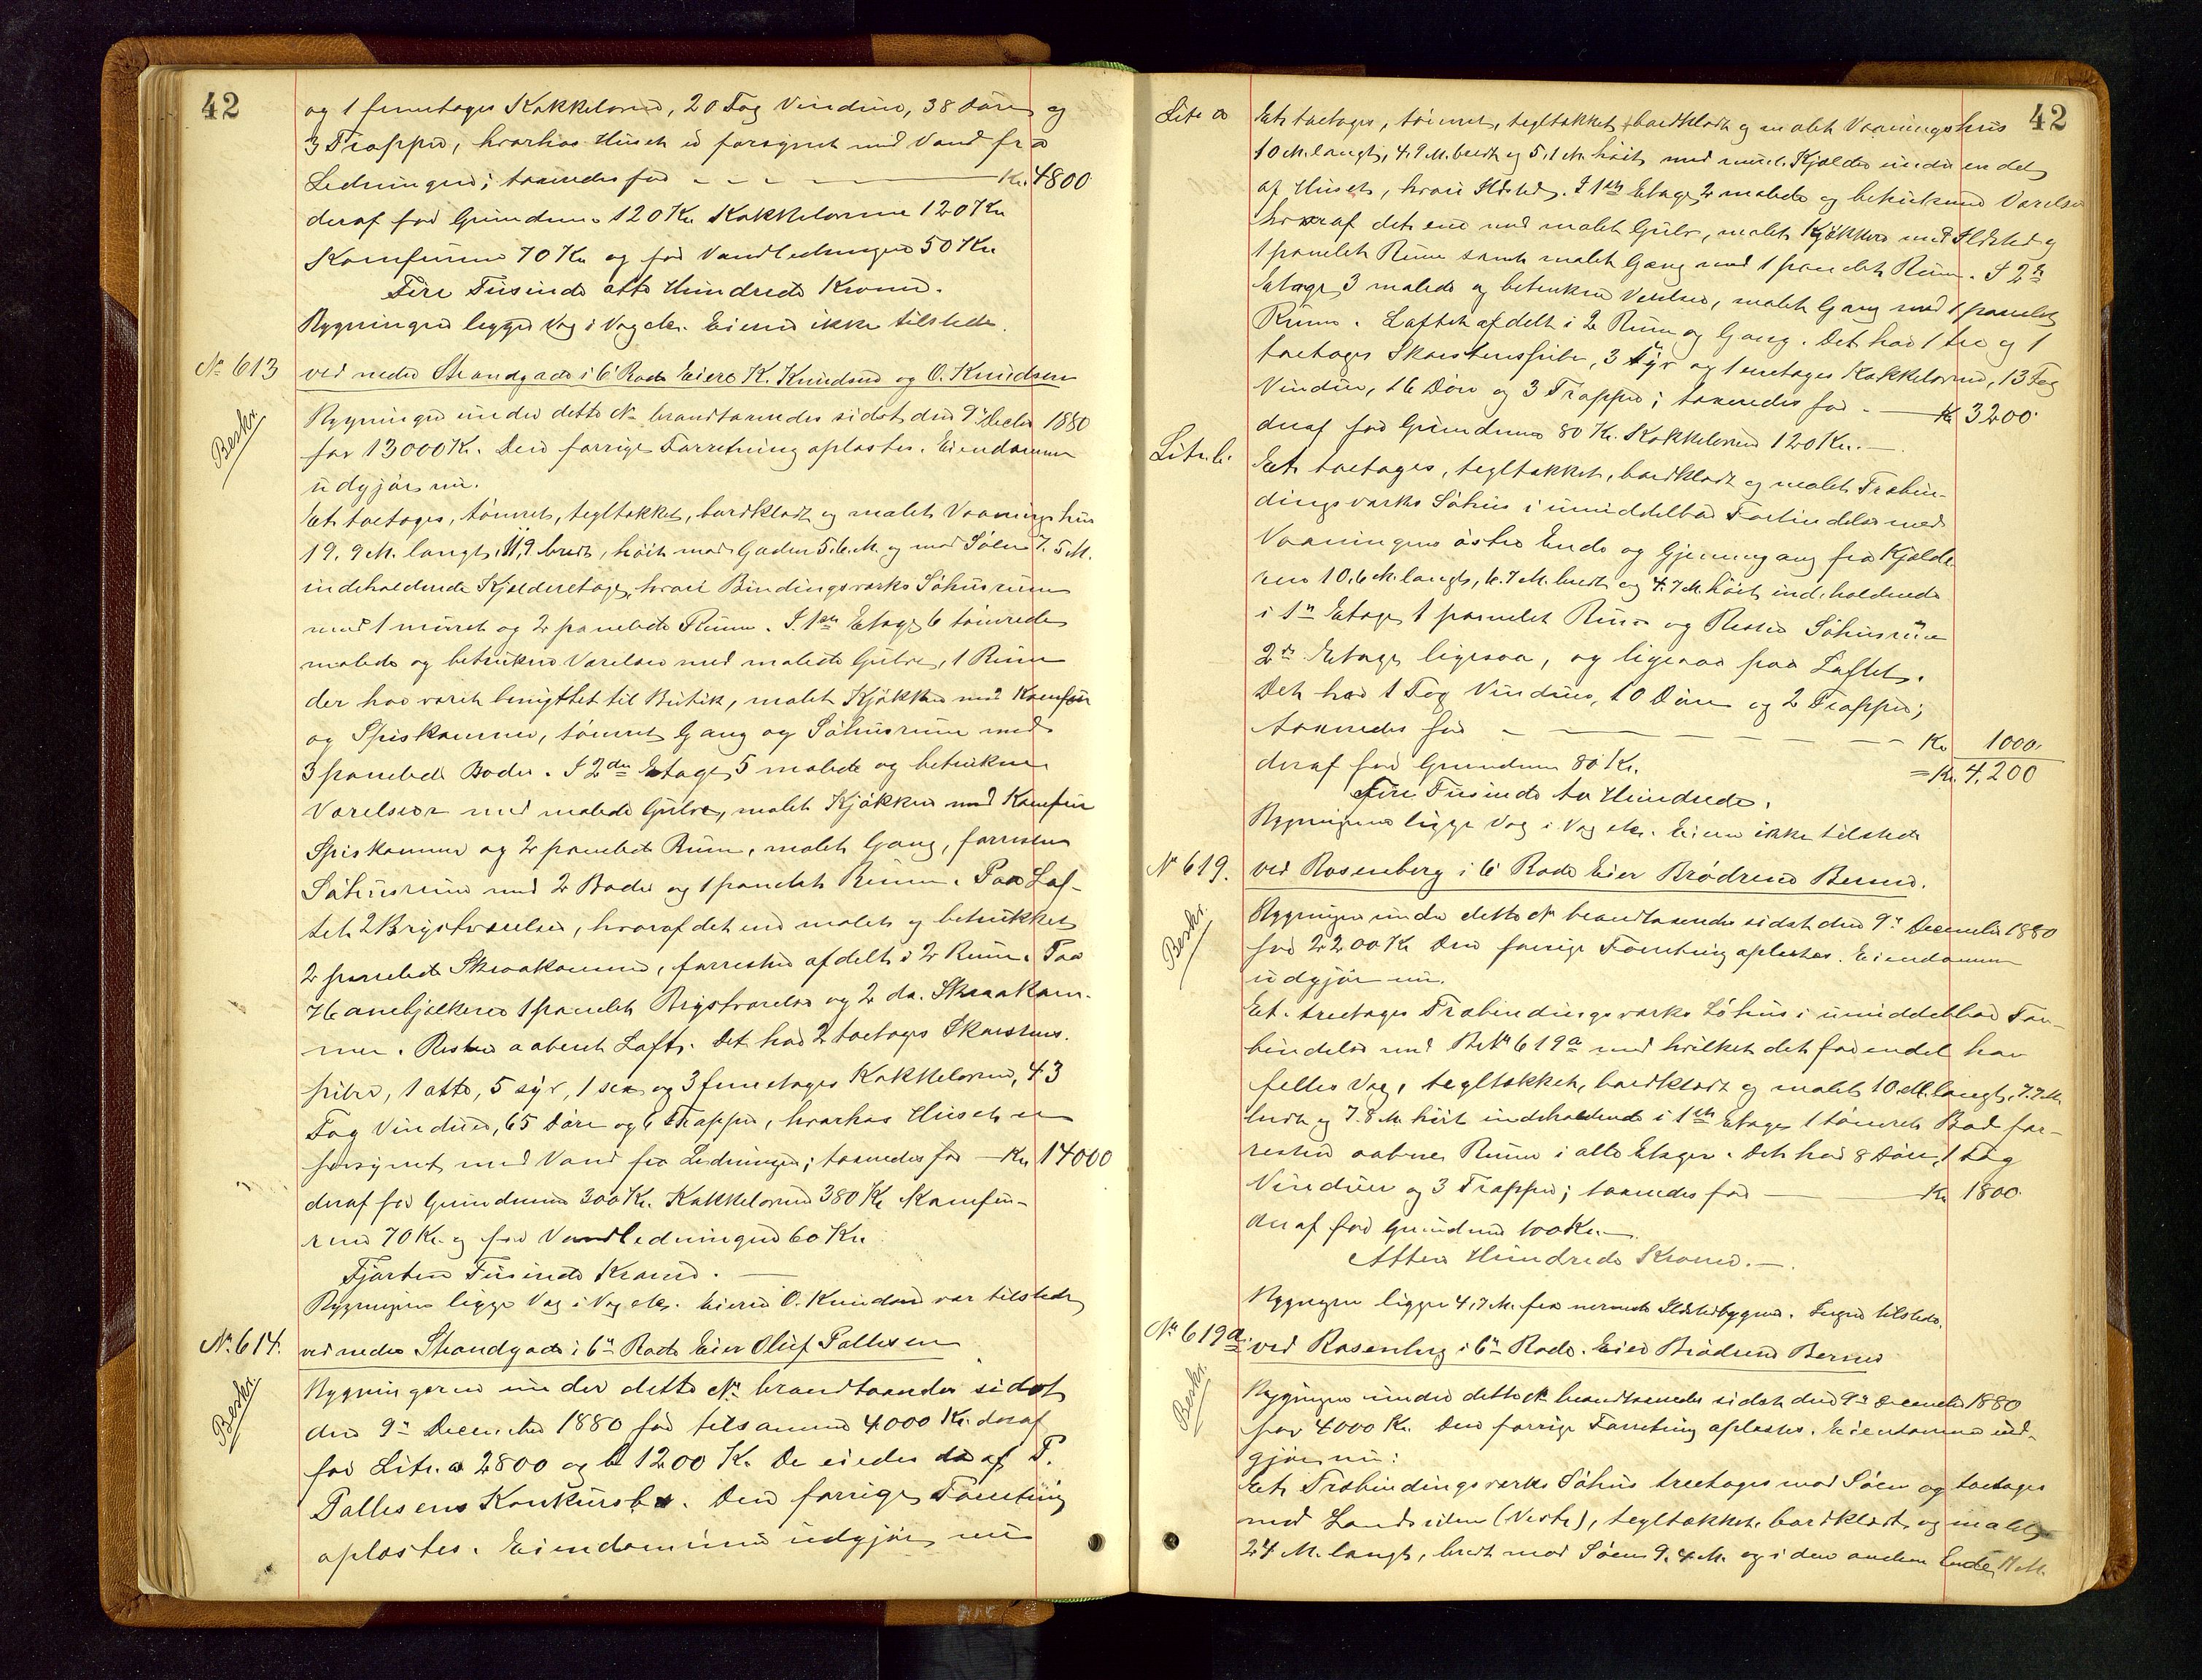 42
og 1 femetages Kakkelovne, 20 Fag Vinduer, 38 Døre og
3 Trapper, hvorhos Huset er forsynet med Vand fra
Ledningen; taxeredes for — Kr. 4800
deraf for Grunden 120 Kr. Kakkelovne 120 Kr
Komfurene 70 Kr. og for Vandledningen 50 Kr.
Fire Tusinde otte Hundrede Kroner.
Bygningen ligger Væg i Væg etc. Eieren ikke tilstede.
No 613
ved nedre Strandgade i 6 Rode Eiere K. Knudsen og O. Knudsen
Beskr.
Bygningen under dette No brandtaxeredes sidst den 9de Decbr 1880
for 13000 Kr. Den forrige Forretning oplæstes. Eiendommen
udgjør nu.
Et toetages, tømret, tegltækket, bordklædt og malet Vaaningshus
19,9 M. langt, 11,9 bredt, høit mod Gaden 5,6 M. og mod Søen 7,5 M.
indeholdende Kjælderetage, hvori Bindingsværks Søhusrum
med 1 muret og 2 panelede Rum. I 1ste Etage 6 tømrede
malede og betrukne Værelser med malede Gulve, 1 Rum
der har været benyttet til Butik, malet Kjøkken med Komfur
og Spiskammer, tømret Gang og Søhusrum med
3 panelede Boder. I 2den Etage 5 malede og betrukne
Værelser med malede Gulve, malet Kjøkken med Komfur
Spiskammer og 2 panelede Rum, malet Gang, forresten
Søhusrum med 2 Boder og 1 panelet Rum. Paa Lof-
tet 2 Brystværelser, hvoraf det ene malet og betrukket
2 panelede Skraakammer, forresten afdelt i 2 Rum. Paa
Hanebjælkerne 1 panelet Brystværelse og 2 do. Skraakam-
mer. Resten aabent Loft. Det har 2 toetages Skorstens-
piber, 1 otte, 5 syv, 1 sex og 3 femetages Kakkelovne, 43
Fag Vinduer, 65 Døre og 6 Trapper, hvorhos Huset er
forsynet med Vand fra Ledningen; taxeredes for — Kr 14000
deraf for Grunden 300 Kr. Kakkelovne 380 Kr Komfu-
rene 70 Kr. og for Vandledningen 60 Kr.
Fjorten Tusinde Kroner. —
Bygningen ligger Væg i Væg etc. Eieren O. Knudsen var tilstede
No 614.
ved nedre Strandgade i 6te Rode Eier Oluf Pallesen
Beskr.
Bygningerne under dette No brandtaxeredes sidst
den 9de December 1880 for tilsammen 4000 Kr. deraf
for Litr. a 2800 og b 1200 Kr. De eiedes da af P.
Pallesens Konkursbo. Den forrige Forretning
oplæstes. Eiendommen udgjør nu
42
Litr a
Et toetages, tømret, tegltækket, bordklædt og malet Vaaningshus
10 M. langt, 4,9 M. bredt og 5,1 M. høit med muret Kjælder under en del
af Huset, hvori Ildsted. I 1ste Etage 2 malede og betrukne Værelser
hvoraf det ene med malet Gulv, malet Kjøkken med Ildsted og
1 panelet Rum samt malet Gang med 1 panelet Rum. I 2den
Etage 3 malede og betrukne Værelser, malet Gang med 1 panelet
Rum. Loftet afdelt i 2 Rum og Gang. Det har 1 tre og 1
toetages Skorstenspibe, 3 syv og 1 enetages Kakkelovne, 13 Fag
Vinduer, 16 Døre og 3 Trapper; taxeredes for — Kr 3200
deraf for Grunden 80 Kr. Kakkelovne 120 Kr. —
Litr. b.
Et toetages, tegltækket, bordklædt og malet Træbin-
dingsværks Søhus i umiddelbar Forbindelse med
Vaaningens østre Ende og Gjennemgang fra Kjælde-
ren 10,6 M. langt, 6,7 M. bredt og 4,7 M. høit indeholdende
i 1ste Etage 1 panelet Rum og Resten Søhusrum
2den Etage ligesaa, og ligesaa paa Loftet.
Det har 1 Fag Vinduer, 10 Døre og 2 Trapper;
taxeredes for — Kr 1000.
deraf for Grunden 80 Kr. = Kr. 4,200
Fire Tusinde to Hundrede.
Bygningerne ligge Væg i Væg etc. Eieren ikke tilstede
No 619.
ved Rosenberg i 6 Rode Eier Brødrene Berner.
Beskr.
Bygningen under dette No brandtaxeredes sidst den 9de December 1880
for 2200 Kr Den forrige Forretning oplæstes. Eiendommen
udgjør nu.
Et treetages Træbindingsværks Søhus i umiddelbar For-
bindelse med BrNo 619a med hvilket det for endel har
fælles Væg, tegltækket, bordklædt og malet 10 M. langt, 7,7 M.
bredt og 7,8 M. høit indeholdende i 1ste Etage 1 tømret Bod for-
resten aabne Rum i alle Etager. Det har 8 Døre, 1 Fag
Vinduer og 3 Trapper; taxeredes for — Kr 1800.
deraf for Grunden 100 Kr. —
Atten Hundrede Kroner. —
Bygningen ligger 4,7 M. fra nærmeste Ildstedbygning. Ingen tilstede.
No 619a.
ved Rosenberg i 6te Rode. Eier Brødrene Berner
Beskr.
Bygningen under dette No brandtaxeredes sidst den 9de December 1880
for 4000 Kr. Den forrige Forretning oplæstes. Eiendommen ud-
gjør nu:
Et Træbindingsværks Søhus treetages mod Søen og toetages
mod Landsiden (Vest), tegltækket, bordklædt og malet
24 M. langt, bredt mod Søen 9,4 M. og i den anden Ende 11 M.